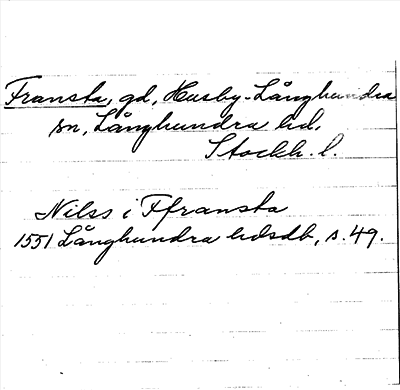 Fransta, gd, Husby-Långhundra
sn, Långhundra hd.
Stockh. l.
Nilss i Ffransta
1551 Långhundra hdsdb, s. 49.